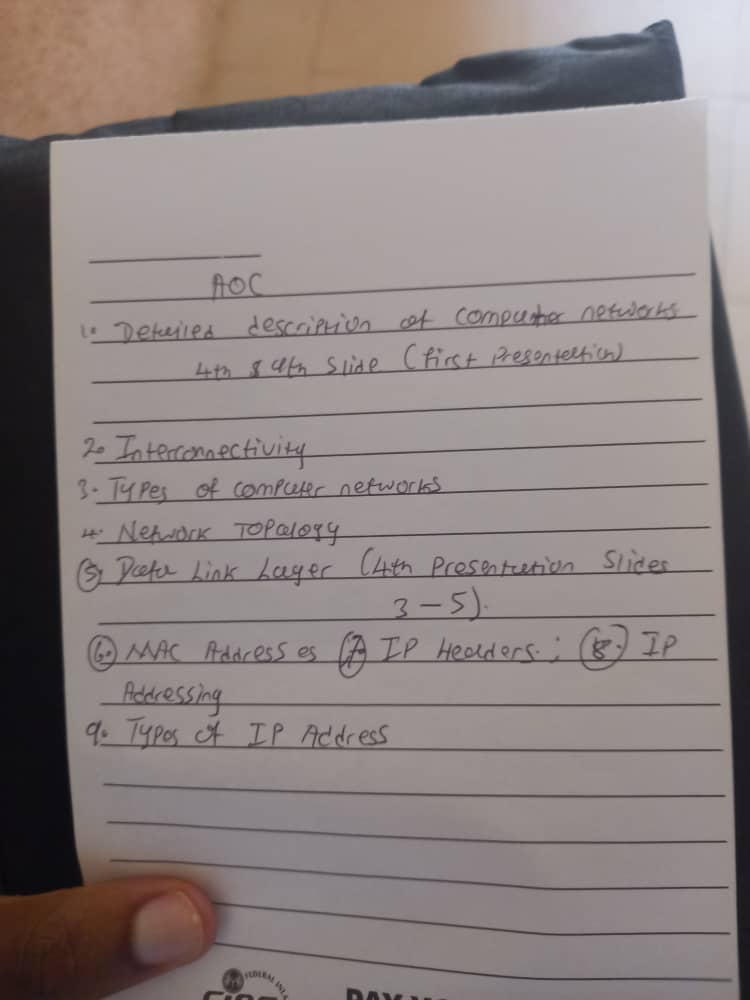 AOC
1. Detailed description of computer networks
4th & 9th Slide (first Presentation)
2. Interconnectivity
3. Types of computer networks
4. Network Topology
5. Data Link Layer (4th Presentation Slides
3-5).
6. MAC Addresses 7. IP Headers.; 8. IP
Addressing
9. Types of IP Address
FEDERAL